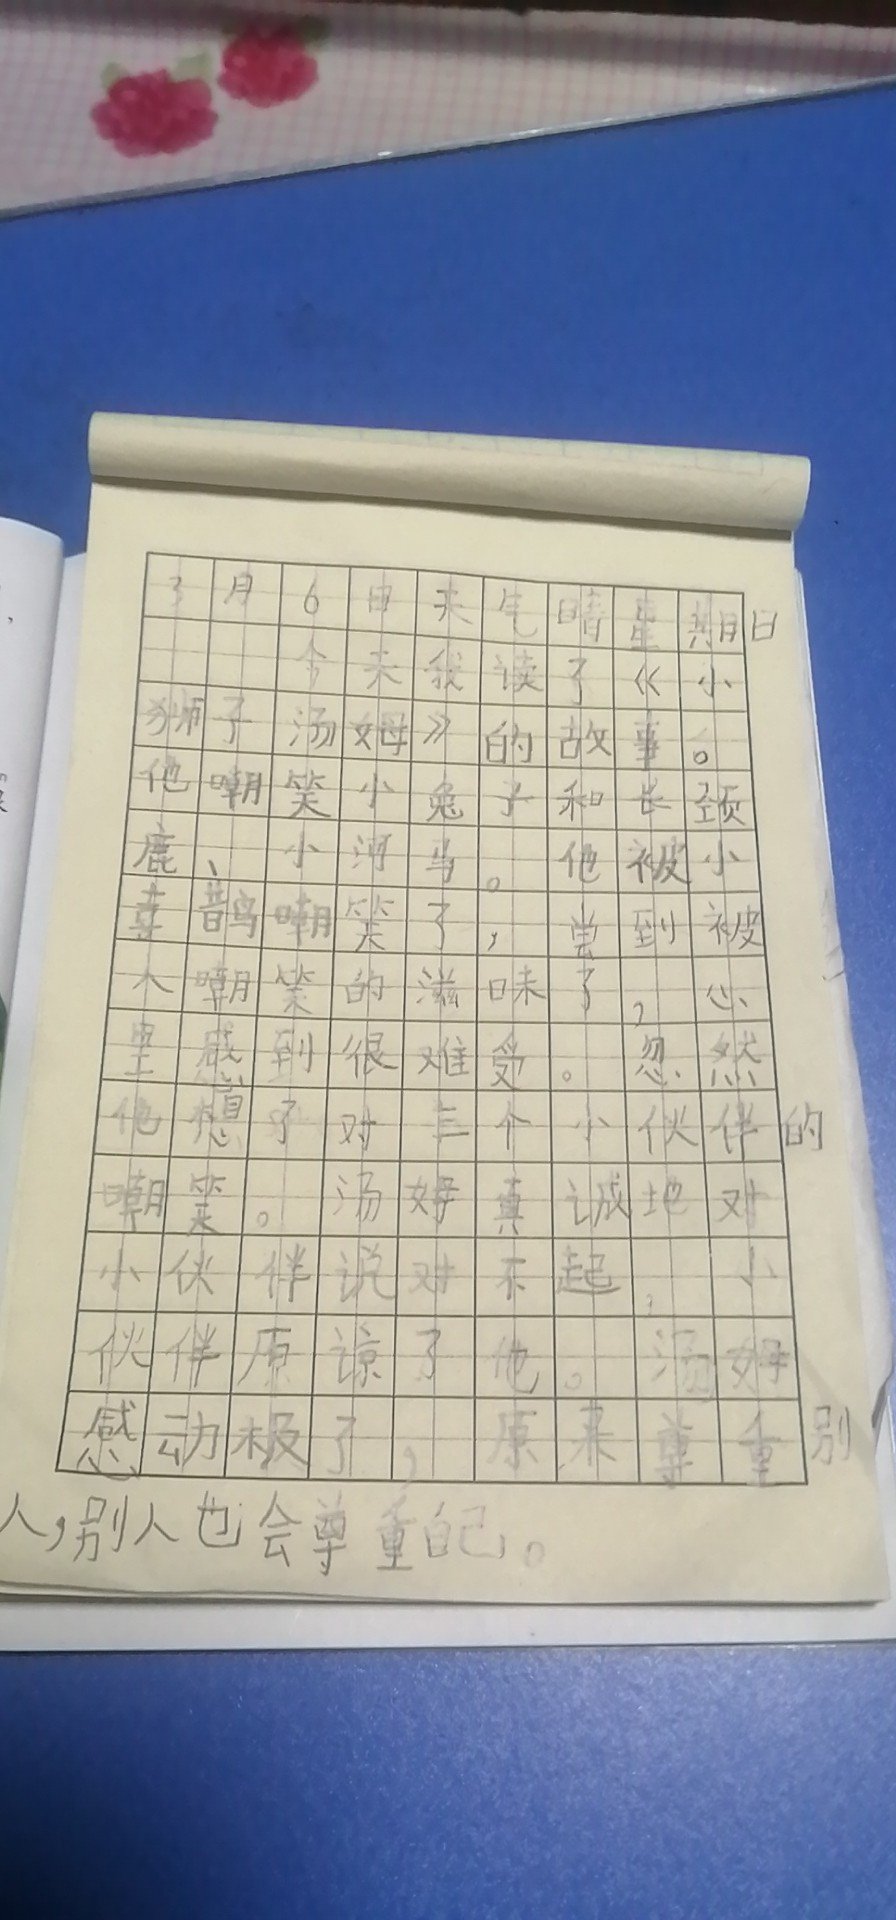 3月6日天气晴星期日
今天我读了《小
狮子汤姆》的故事。
他嘲笑小兔子和长颈
鹿、小河马。他被小
喜鹊嘲笑了，尝到被
人嘲笑的滋味了，心
里感到很难受。忽然
他想了对三个小伙伴的
嘲笑。汤姆真诚地对
小伙伴说对不起，小
伙伴原谅了他。汤姆
感动极了，原来尊重别
人，别人也会尊重自己。